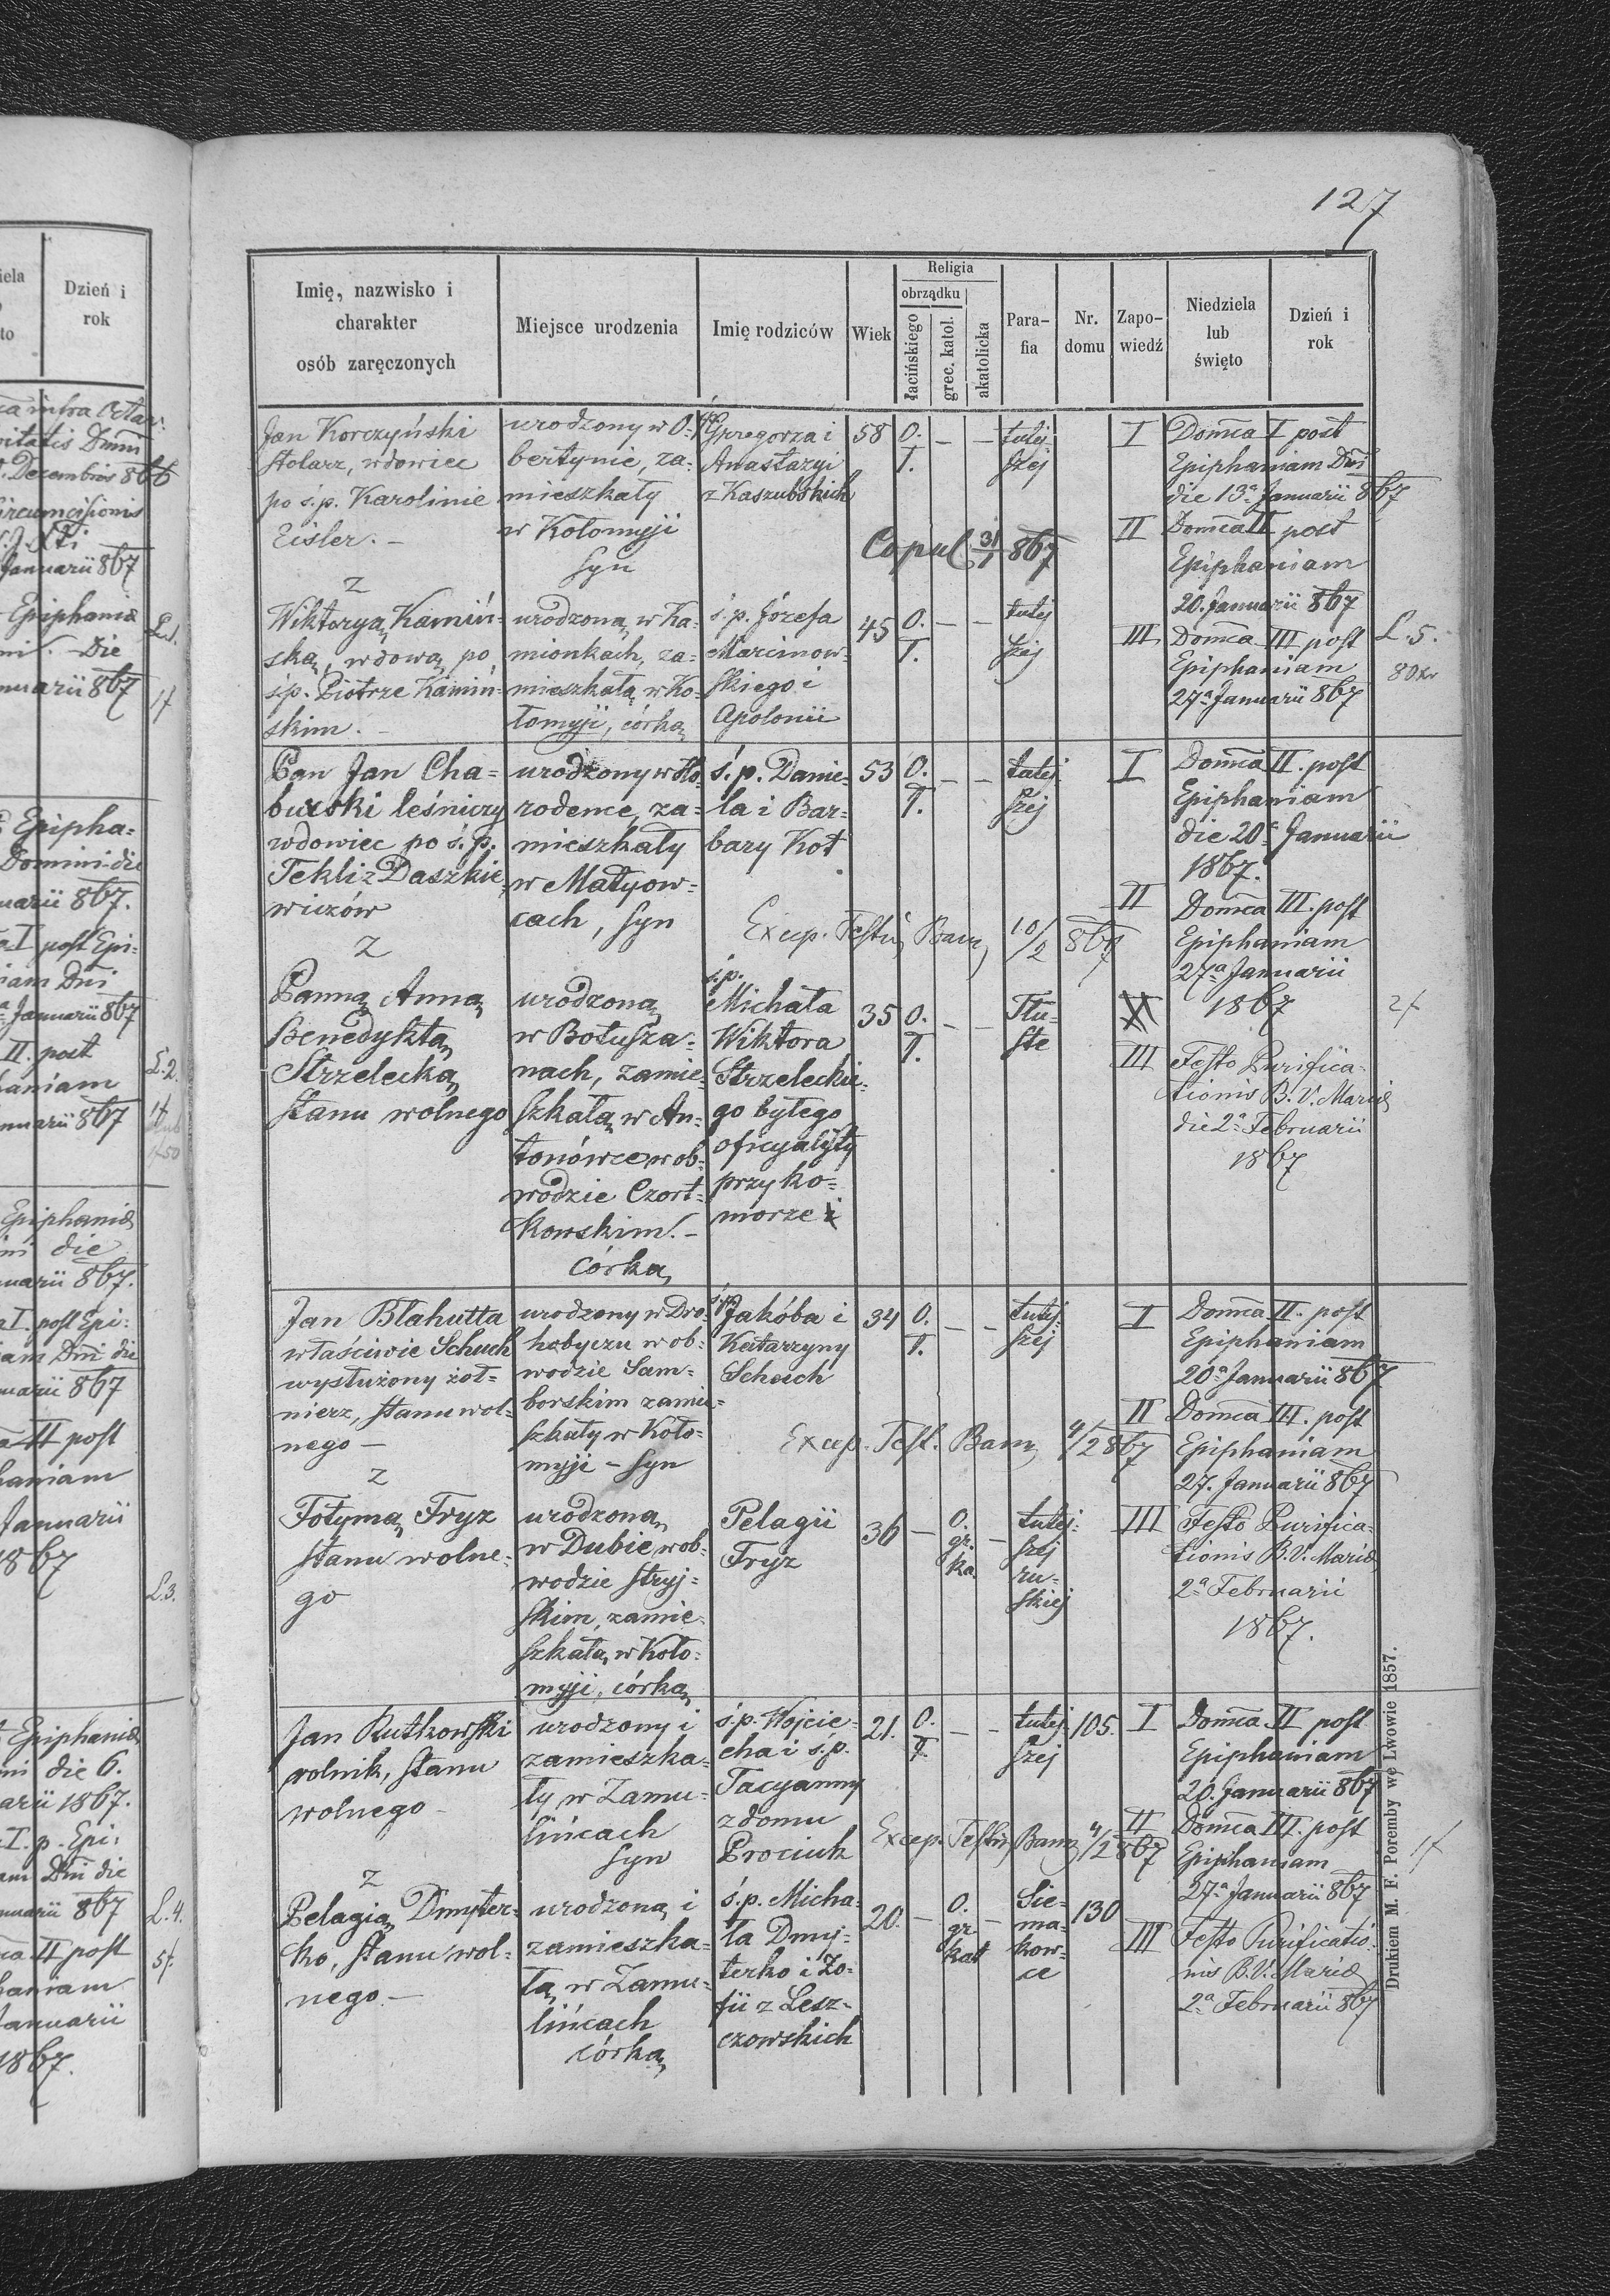 127
Imię, nazwisko i
charakter
osób zaręczonych
Miejsce urodzenia
Imię rodziców
Wiek
Religia
obrządku
łacińskiego
grec. katol.
akatolicka
Para-
fia
Nr.
domu
Zapo-
wiedź
Niedziela
lub
święto
Dzień i
rok
Jan Korczyński
stolarz, wdowiec
po ś.p. Karolinie
Eisler. –
z
Wiktoryą Kamiń-
ską, wdową po
ś.p. Piotrze Kamiń-
skim. –
urodzony w O-
bertynie, za-
mieszkały
w Kołomyji
syn
urodzoną w Ka-
mionkach, za-
mieszkałą w Ko-
łomyji, córką
Grzegorza i
Anastazyi
z Kaszubskich
ś.p. Józefa
Marcinow-
skiego i
Apolonii
58 O. – – tutej
Ł. szej
Copul. 31/1 867
45 O. – – tutej
Ł. szej
I Domca I post
Epiphaniam Dni
die 13a Januarii 867
II Domca II post
Epiphaniam
20. Januarii 867
III Domca III post
Epiphaniam
27a Januarii 867
L. 5.
80 kr
Pan Jan Cha-
buxski leśniczy
wdowiec po ś.p.
Tekli z Daszkie-
wiczów
z
Panną Anną
Benedyktą
Strzelecką
stanu wolnego
urodzony w Ho-
rodence, za-
mieszkały
w Matyow-
cach, syn
urodzoną
w Botusza-
nach, zamie-
szkałą w An-
tonówce w ob-
wodzie Czort-
kowskim. –
córką
ś.p. Danie-
la i Bar-
bary Kot
ś.p.
Michała
Wiktora
Strzeleckie-
go byłego
oficyalisty
przy ko-
morze
53 O. – – tutej
Ł. szej
Excep. Testim Bann 10/2 867
35 O. – – Tłu-
Ł. ste
I Domca II. post
Epiphaniam
die 20a Januarii
1867.
II Domca III. post
Epiphaniam
27a Januarii
1867
III Festo Purifica-
tionis B. V. Mariæ
die 2a Februarii
1867
2f
Jan Blahutta
właściwie Schuch
wysłużony żoł-
nierz, stanu wol-
nego –
z
Fotymą Fryz
stanu wolne-
go
urodzony w Dro-
hobyczu w ob-
wodzie Sam-
borskim zamie-
szkały w Koło-
myji – syn
urodzoną
w Dubie w ob-
wodzie Stryj-
skim, zamie-
szkałą w Koło-
myji, córką
ś.p. Jakóba i
Katarzyny
Schuch
Pelagii
Fryz
34 O. – – tutej-
Ł. szej
Excep. Test. Bann 4/2 867
36 – O. – tutej-
gr. szej
ka. ru-
skiej
I Domca II. post
Epiphaniam
20a Januarii 867
II Domca III. post
Epiphaniam
27. Januarii 867
III Festo Purifica-
tionis B. V. Mariæ
2a Februarii
1867.
Jan Rutkowski
rolnik, stanu
wolnego –
z
Pelagią Dmyter-
ko, stanu wol-
nego. –
urodzony i
zamieszka-
ły w Zamu-
lińcach
syn
urodzoną i
zamieszka-
łą w Zamu-
lińcach
córką
ś.p. Wojcie-
cha i ś.p.
Tacyanny
z domu
Prociuk
ś.p. Micha-
ła Dmy-
terko i Zo-
fii z Lesz-
czowskich
21. O. – – tutej 105.
Ł. szej
Excep. Testim Bann 4/2 867
20. – O. – Sie- 130
gr. ma-
kat kow-
ce
I Domca II post
Epiphaniam
20. Januarii 867
II Domca III. post
Epiphaniam
27a Januarii 867
III Festo Purificatio-
nis B. V. Mariæ
2a Februarii 867
1f
Drukiem M. F. Poremby we Lwowie 1857.
iela
to
Dzień i
rok
infra Octav.
vitatis Dnini
Decembris 866
Circumcisionis
Januarii 867
Epiphaniæ
Die
nuarii 867
L.1.
1f
Epipha-
Domini die
uarii 867.
I post Epi-
iam Dni
Januarii 867
II. post
haniam
nuarii 867
L.2.
1f
Epiphaniæ
ni die
uarii 867.
I. post Epi-
am Dni die
nuarii 867
II post
haniam
Januarii
1867
L.3.
Epiphaniæ
ni die 6.
arii 1867.
I. p. Epi-
am Dni die
nuarii 867
II post
haniam
Januarii
1867.
L.4.
5f.